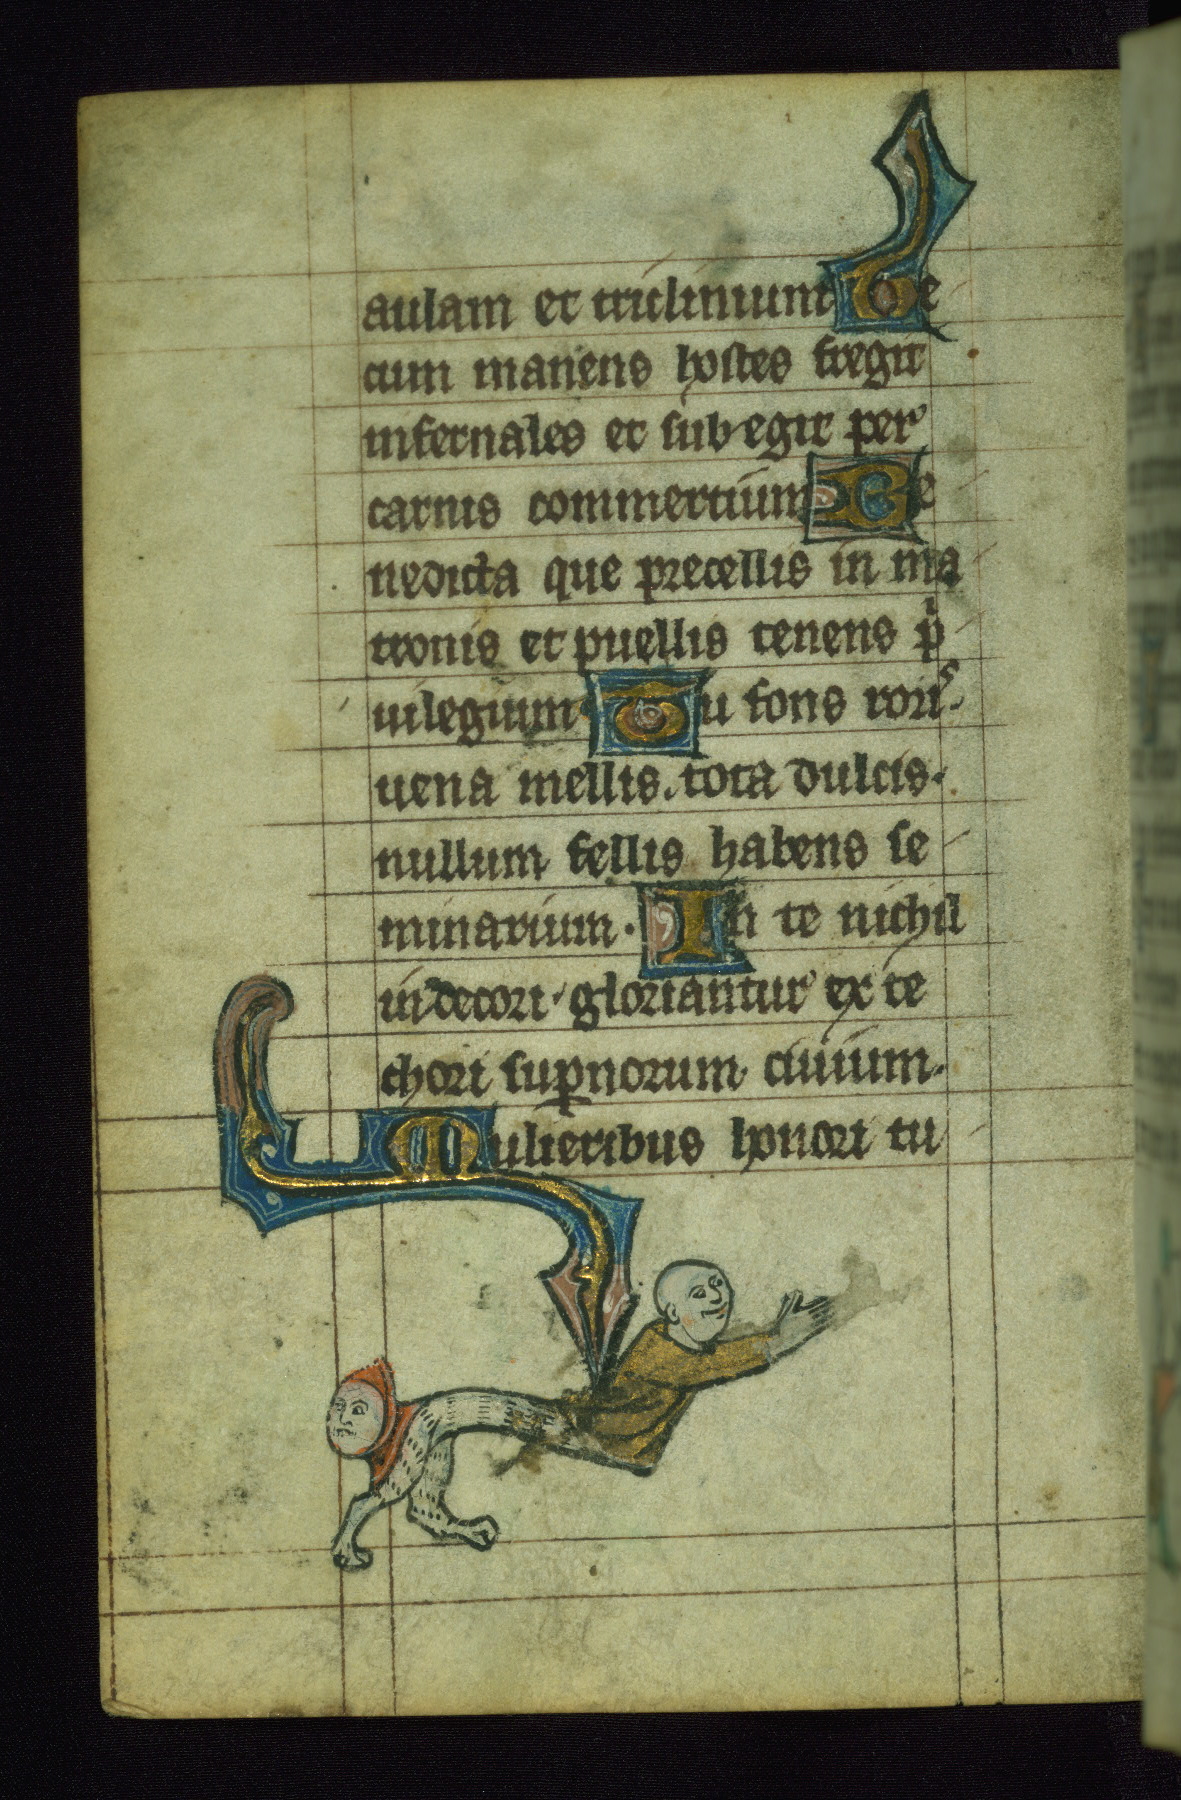 aulam et triclinium Te
cum manens hostes fregit
infernales et subegit per
carnis commertium Be
nedicta que precellis in ma
tronis et puellis tenens pͥ
uilegium Tu fons roris.
uena mellis. tota dulcis.
nullum fellis habens se
minarium. In te nichil
indecori. gloriantur ex te
chori suꝑnorum ciuium.
Mulieribus honori tu